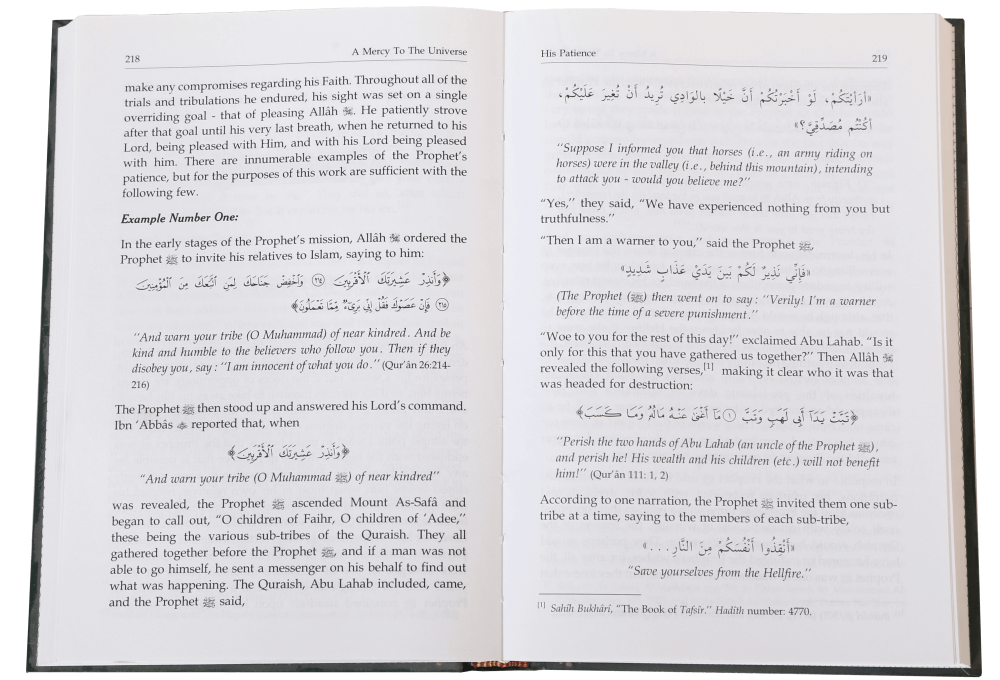 218
A Mercy To The Universe
make any compromises regarding his Faith. Throughout all of the
trials and tribulations he endured, his sight was set on a single
overriding goal - that of pleasing Allâh ﷻ. He patiently strove
after that goal until his very last breath, when he returned to his
Lord, being pleased with Him, and with his Lord being pleased
with him. There are innumerable examples of the Prophet's
patience, but for the purposes of this work are sufficient with the
following few.
Example Number One:
In the early stages of the Prophet's mission, Allâh ﷻ ordered the
Prophet ﷺ to invite his relatives to Islam, saying to him:
﴿وَأَنذِرْ عَشِيرَتَكَ ٱلْأَقْرَبِينَ ﴿٢١٤﴾ وَٱخْفِضْ جَنَاحَكَ لِمَنِ ٱتَّبَعَكَ مِنَ ٱلْمُؤْمِنِينَ
﴿٢١٥﴾ فَإِنْ عَصَوْكَ فَقُلْ إِنِّى بَرِىٓءٌ مِّمَّا تَعْمَلُونَ﴾
"And warn your tribe (O Muhammad) of near kindred. And be
kind and humble to the believers who follow you. Then if they
disobey you, say: "I am innocent of what you do." (Qur'ân 26:214-
216)
The Prophet ﷺ then stood up and answered his Lord's command.
Ibn 'Abbâs reported that, when
﴿وَأَنذِرْ عَشِيرَتَكَ ٱلْأَقْرَبِينَ﴾
"And warn your tribe (O Muhammad ﷺ) of near kindred"
was revealed, the Prophet ﷺ ascended Mount As-Safâ and
began to call out, "O children of Faihr, O children of 'Adee,"
these being the various sub-tribes of the Quraish. They all
gathered together before the Prophet ﷺ, and if a man was not
able to go himself, he sent a messenger on his behalf to find out
what was happening. The Quraish, Abu Lahab included, came,
and the Prophet ﷺ said,
His Patience
219
«أَرَأَيْتَكُمْ، لَوْ أَخْبَرْتُكُمْ أَنَّ خَيْلًا بِالوَادِي تُرِيدُ أَنْ تُغِيرَ عَلَيْكُمْ،
أَكُنْتُم مُصَدِّقِيَّ؟»
"Suppose I informed you that horses (i.e., an army riding on
horses) were in the valley (i.e., behind this mountain), intending
to attack you - would you believe me?"
"Yes," they said, "We have experienced nothing from you but
truthfulness."
"Then I am a warner to you," said the Prophet ﷺ,
«فَإِنِّي نَذِيرٌ لَكُمْ بَيْنَ يَدَيْ عَذَابٍ شَدِيدٍ»
(The Prophet (ﷺ) then went on to say: "Verily! I'm a warner
before the time of a severe punishment."
"Woe to you for the rest of this day!" exclaimed Abu Lahab. "Is it
only for this that you have gathered us together?" Then Allâh ﷻ
revealed the following verses,[1] making it clear who it was that
was headed for destruction:
﴿تَبَّتْ يَدَآ أَبِى لَهَبٍ وَتَبَّ ﴿١﴾ مَآ أَغْنَىٰ عَنْهُ مَالُهُۥ وَمَا كَسَبَ﴾
"Perish the two hands of Abu Lahab (an uncle of the Prophet ﷺ),
and perish he! His wealth and his children (etc.) will not benefit
him!" (Qur'ân 111: 1, 2)
According to one narration, the Prophet ﷺ invited them one sub-
tribe at a time, saying to the members of each sub-tribe,
«أَنْقِذُوا أَنْفُسَكُمْ مِنَ النَّارِ . . .»
"Save yourselves from the Hellfire."
[1] Sahîh Bukhârî, "The Book of Tafsîr." Hadîth number: 4770.